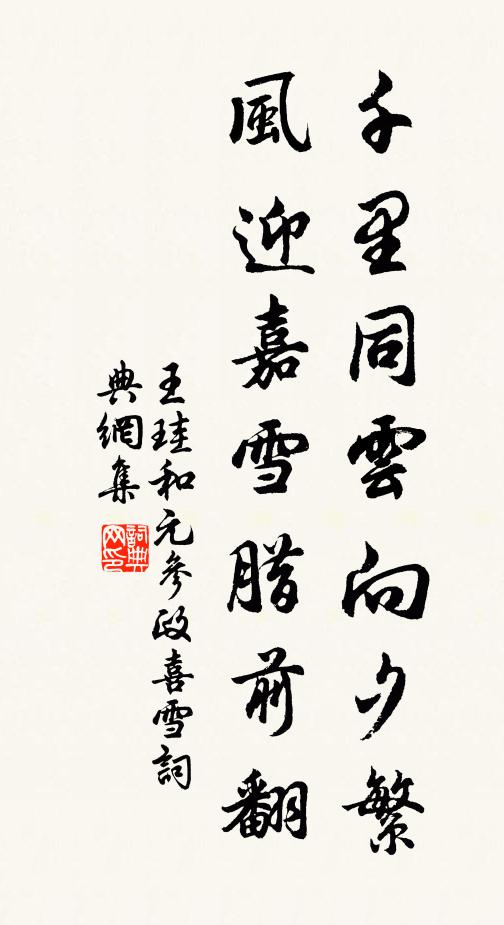 千里同雲向夕繁
風迎嘉雪腊前翻
王珪和元參政喜雪詞
典網集
詞典網印